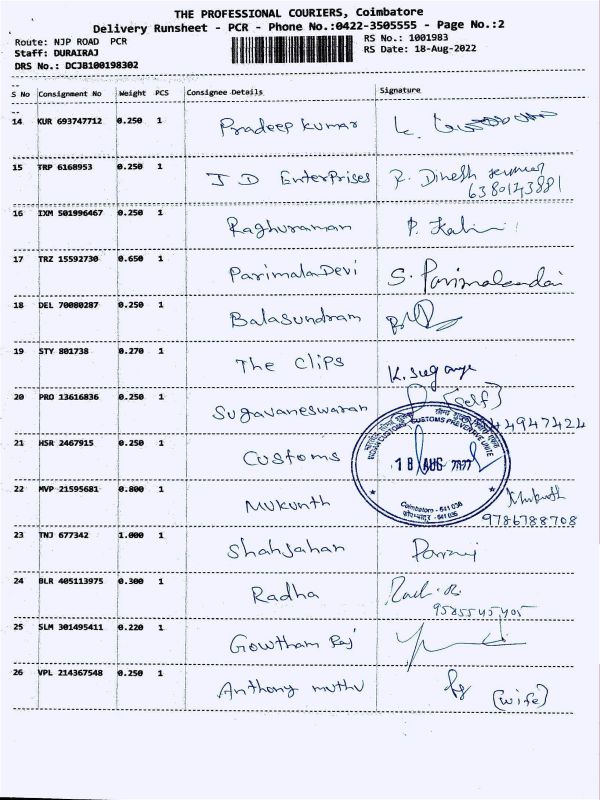 THE PROFESSIONAL COURIERS, Coimbatore
Delivery Runsheet - PCR - Phone No.:0422-3505555 - Page No.:2
Route: NJP ROAD PCR
Staff: DURAIRAJ
DRS No.: DCJB100198302
RS No.: 1001983
RS Date: 18-Aug-2022
S No Consignment No Weight PCS Consignee Details Signature
14 KUR 693747712 0.250 1 Pradeep kumar
15 TRP 6168953 0.250 1 J D Enterprises R. Dinesh kumar
6380143881
16 IXM 501996467 0.250 1 Raghuraman
17 TRZ 15592730 0.650 1 ParimalaDevi S.
18 DEL 70080287 0.250 1 Balasundram
19 STY 801738 0.270 1 The Clips
20 PRO 13616836 0.250 1 Sugavaneswaran (self)
44947424
21 HSR 2467915 0.250 1 Customs
INDIAN CUSTOMS, CUSTOMS PREVENTIVE UNIT
18 AUG
Coimbatore - 641 036
22 MVP 21595681 0.800 1 Mukunth Mukunth
9786788708
23 TNJ 677342 1.000 1 Shahjahan
24 BLR 405113975 0.300 1 Radha
9585545405
25 SLM 301495411 0.220 1 Gowtham Raj
26 VPL 214367548 0.250 1 Anthony muthu (wife)